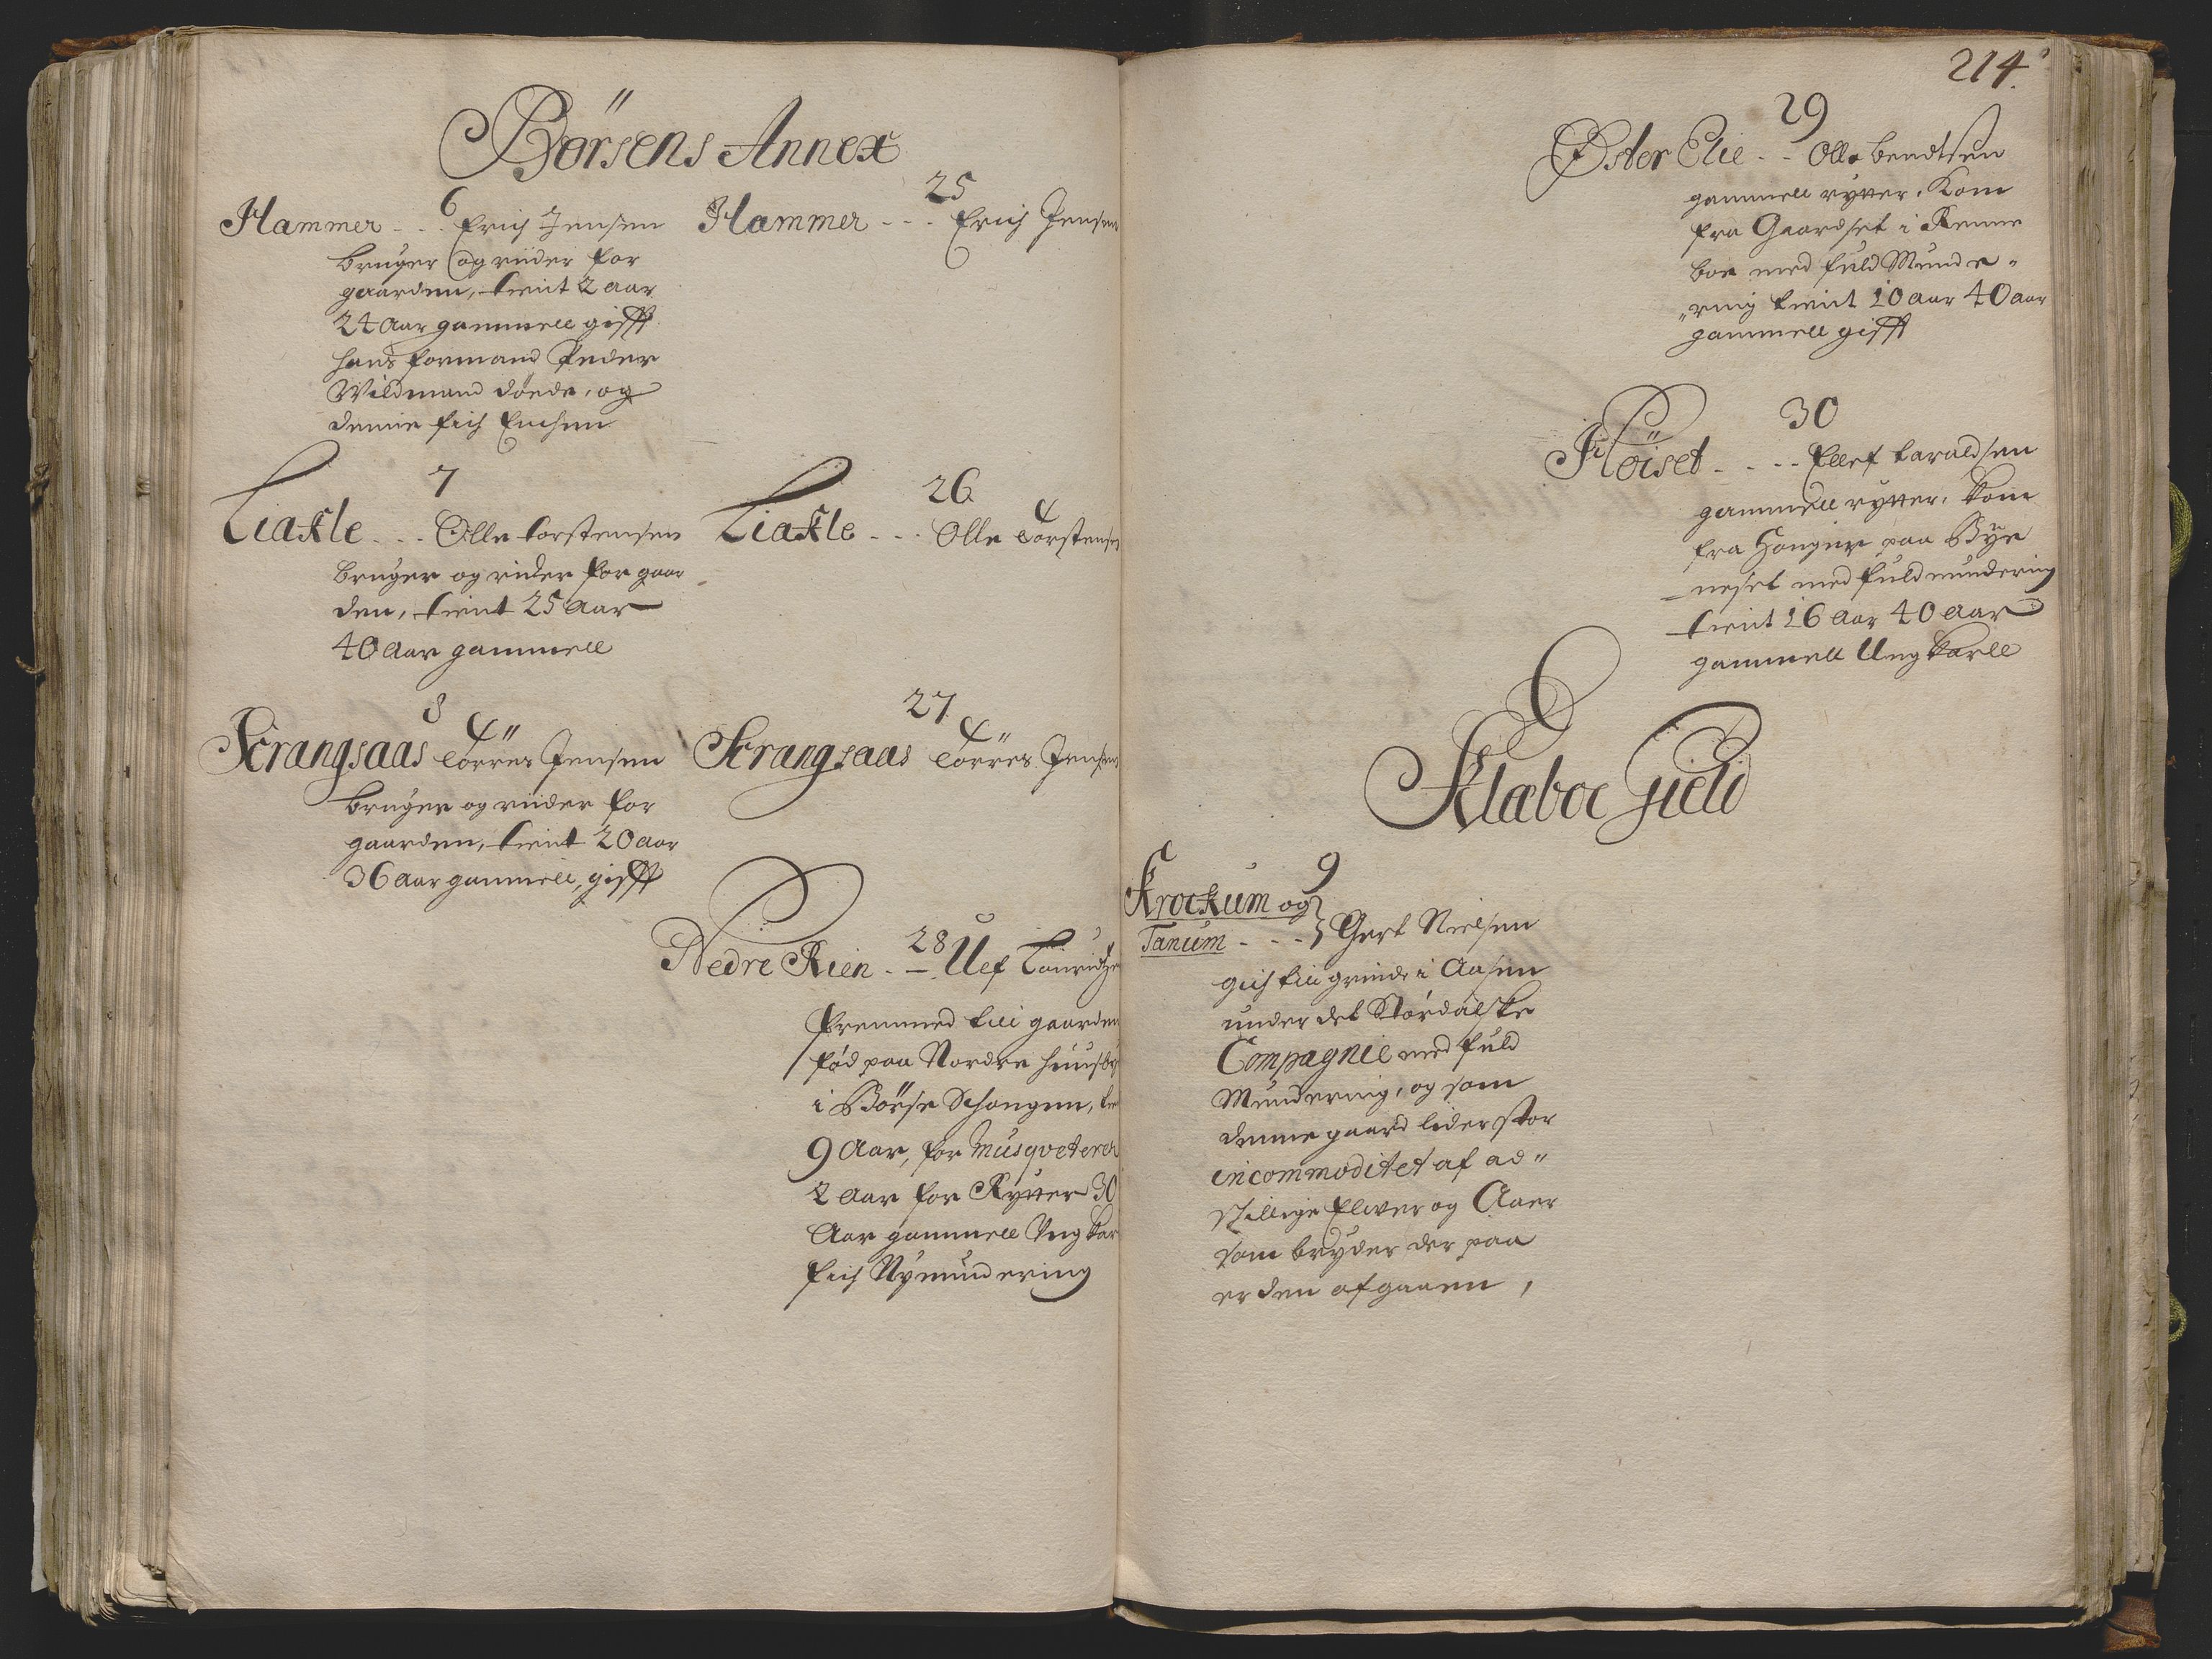 Börsens Annex
6
Hammer - - . Erich Jensen
bruger og riider for
gaarden, tient 2 aar
24 Aar gammell gifft
hans formand Peder
Wildmand döede, og
denne fich Enchen
7
Liakle - - . Olle torstensen
bruger og rider for gaar
den, tient 25 Aar
40 Aar gammell
8
Skrangsaas Törres Jensen
bruger og riider for
gaarden, tient 20 aar
36 Aar gammell, gifft
25
Hammer - - - Erich Jensen
26
Liakle - - . Olle Torstensen
27
Skrangsaas Törres Jensen
28
Nedre Rien - - Uef Lauridtze
fremmed till gaarden
fød paa Nordre
i Börse Schougen,
9 Aar, for Musqveterer
2 Aar for Rytter 30
Aar gammell Ung kar
fich Nÿ mundering
214.
29
Øster Elie - - Olle bendtsen
gammell rytter. Kom
fra Gaardset i Renne
boe med fuld Munde„
„ring tient 10 Aar 40 Aar
gammell gifft
30
Höiset - - - - Ellef taraldsen
gammell rytter, kom
fra paa Bye
neset med fuld mundering
tient 16 Aar 40 Aar
gammell Ung karll
Klæboe Gield
9
Krockum og
Tanum - - - } Gert Nielsen
gich till grinde i Aasen
under det Stördalske
Compagnie med fuld
Mundering, og som
denne gaard lider stor
incommoditet af ad„
skillige Elwer og Aaer
som bryder der paa
er den afgaaen,